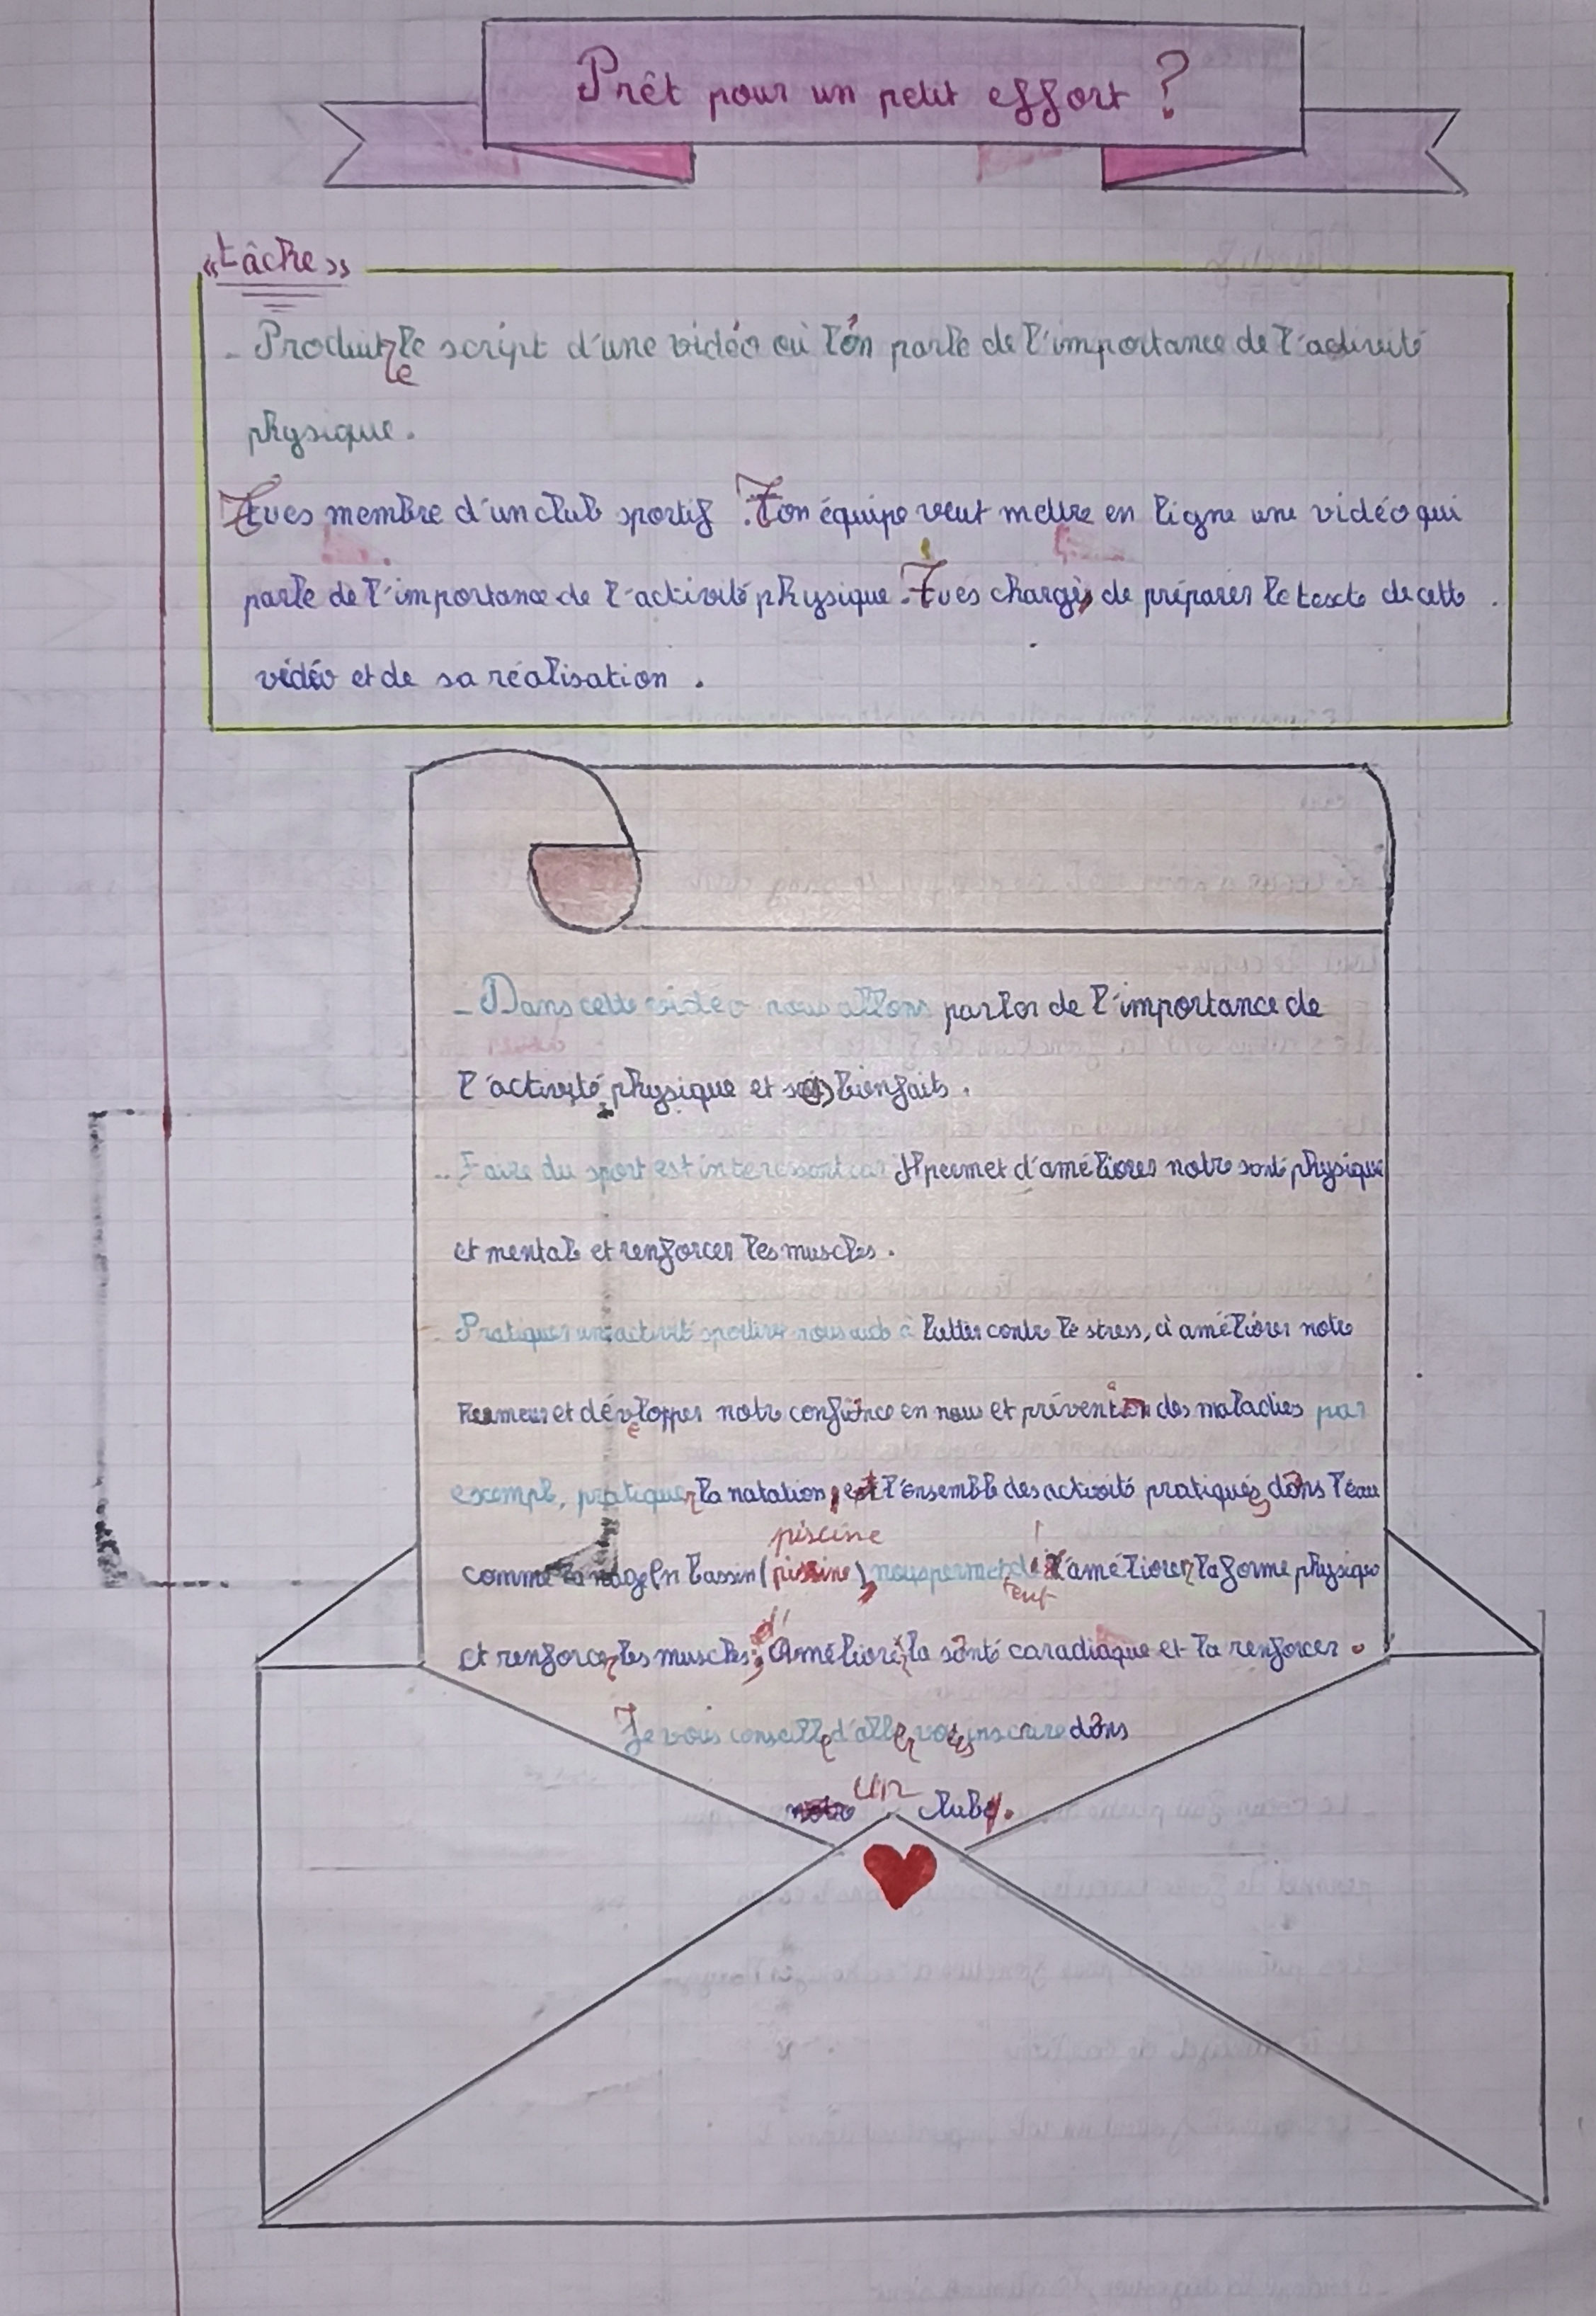 Prêt pour un petit effort ?
«tâche»
- Produire le script d'une vidéo où l'on parle de l'importance de l'activité
physique.
Tu es membre d'un club sportif. Ton équipe veut mettre en ligne une vidéo qui
parle de l'importance de l'activité physique. Tu es chargé de préparer le texte de cette
vidéo et de sa réalisation.
- Dans cette vidéo nous allons parler de l'importance de
l'activité physique et ses bienfaits.
- Faire du sport est intéressant car Il permet d'améliorer notre santé physique
et mentale et renforcer les muscles.
- Pratiquer une activité sportive nous aide à lutter contre le stress, à améliorer notre
humeur et développer notre confiance en nous et prévention des maladies par
exemple, pratiquer la natation, l'ensemble des activité pratiqués dans l'eau
comme la nage En bassin (piscine), nous permet d'améliorer la forme physique
et renforcer les muscles, d'Améliorer la santé caradiaque et la renforcer.
Je vous conseille d'aller vous inscrire dans
un club.